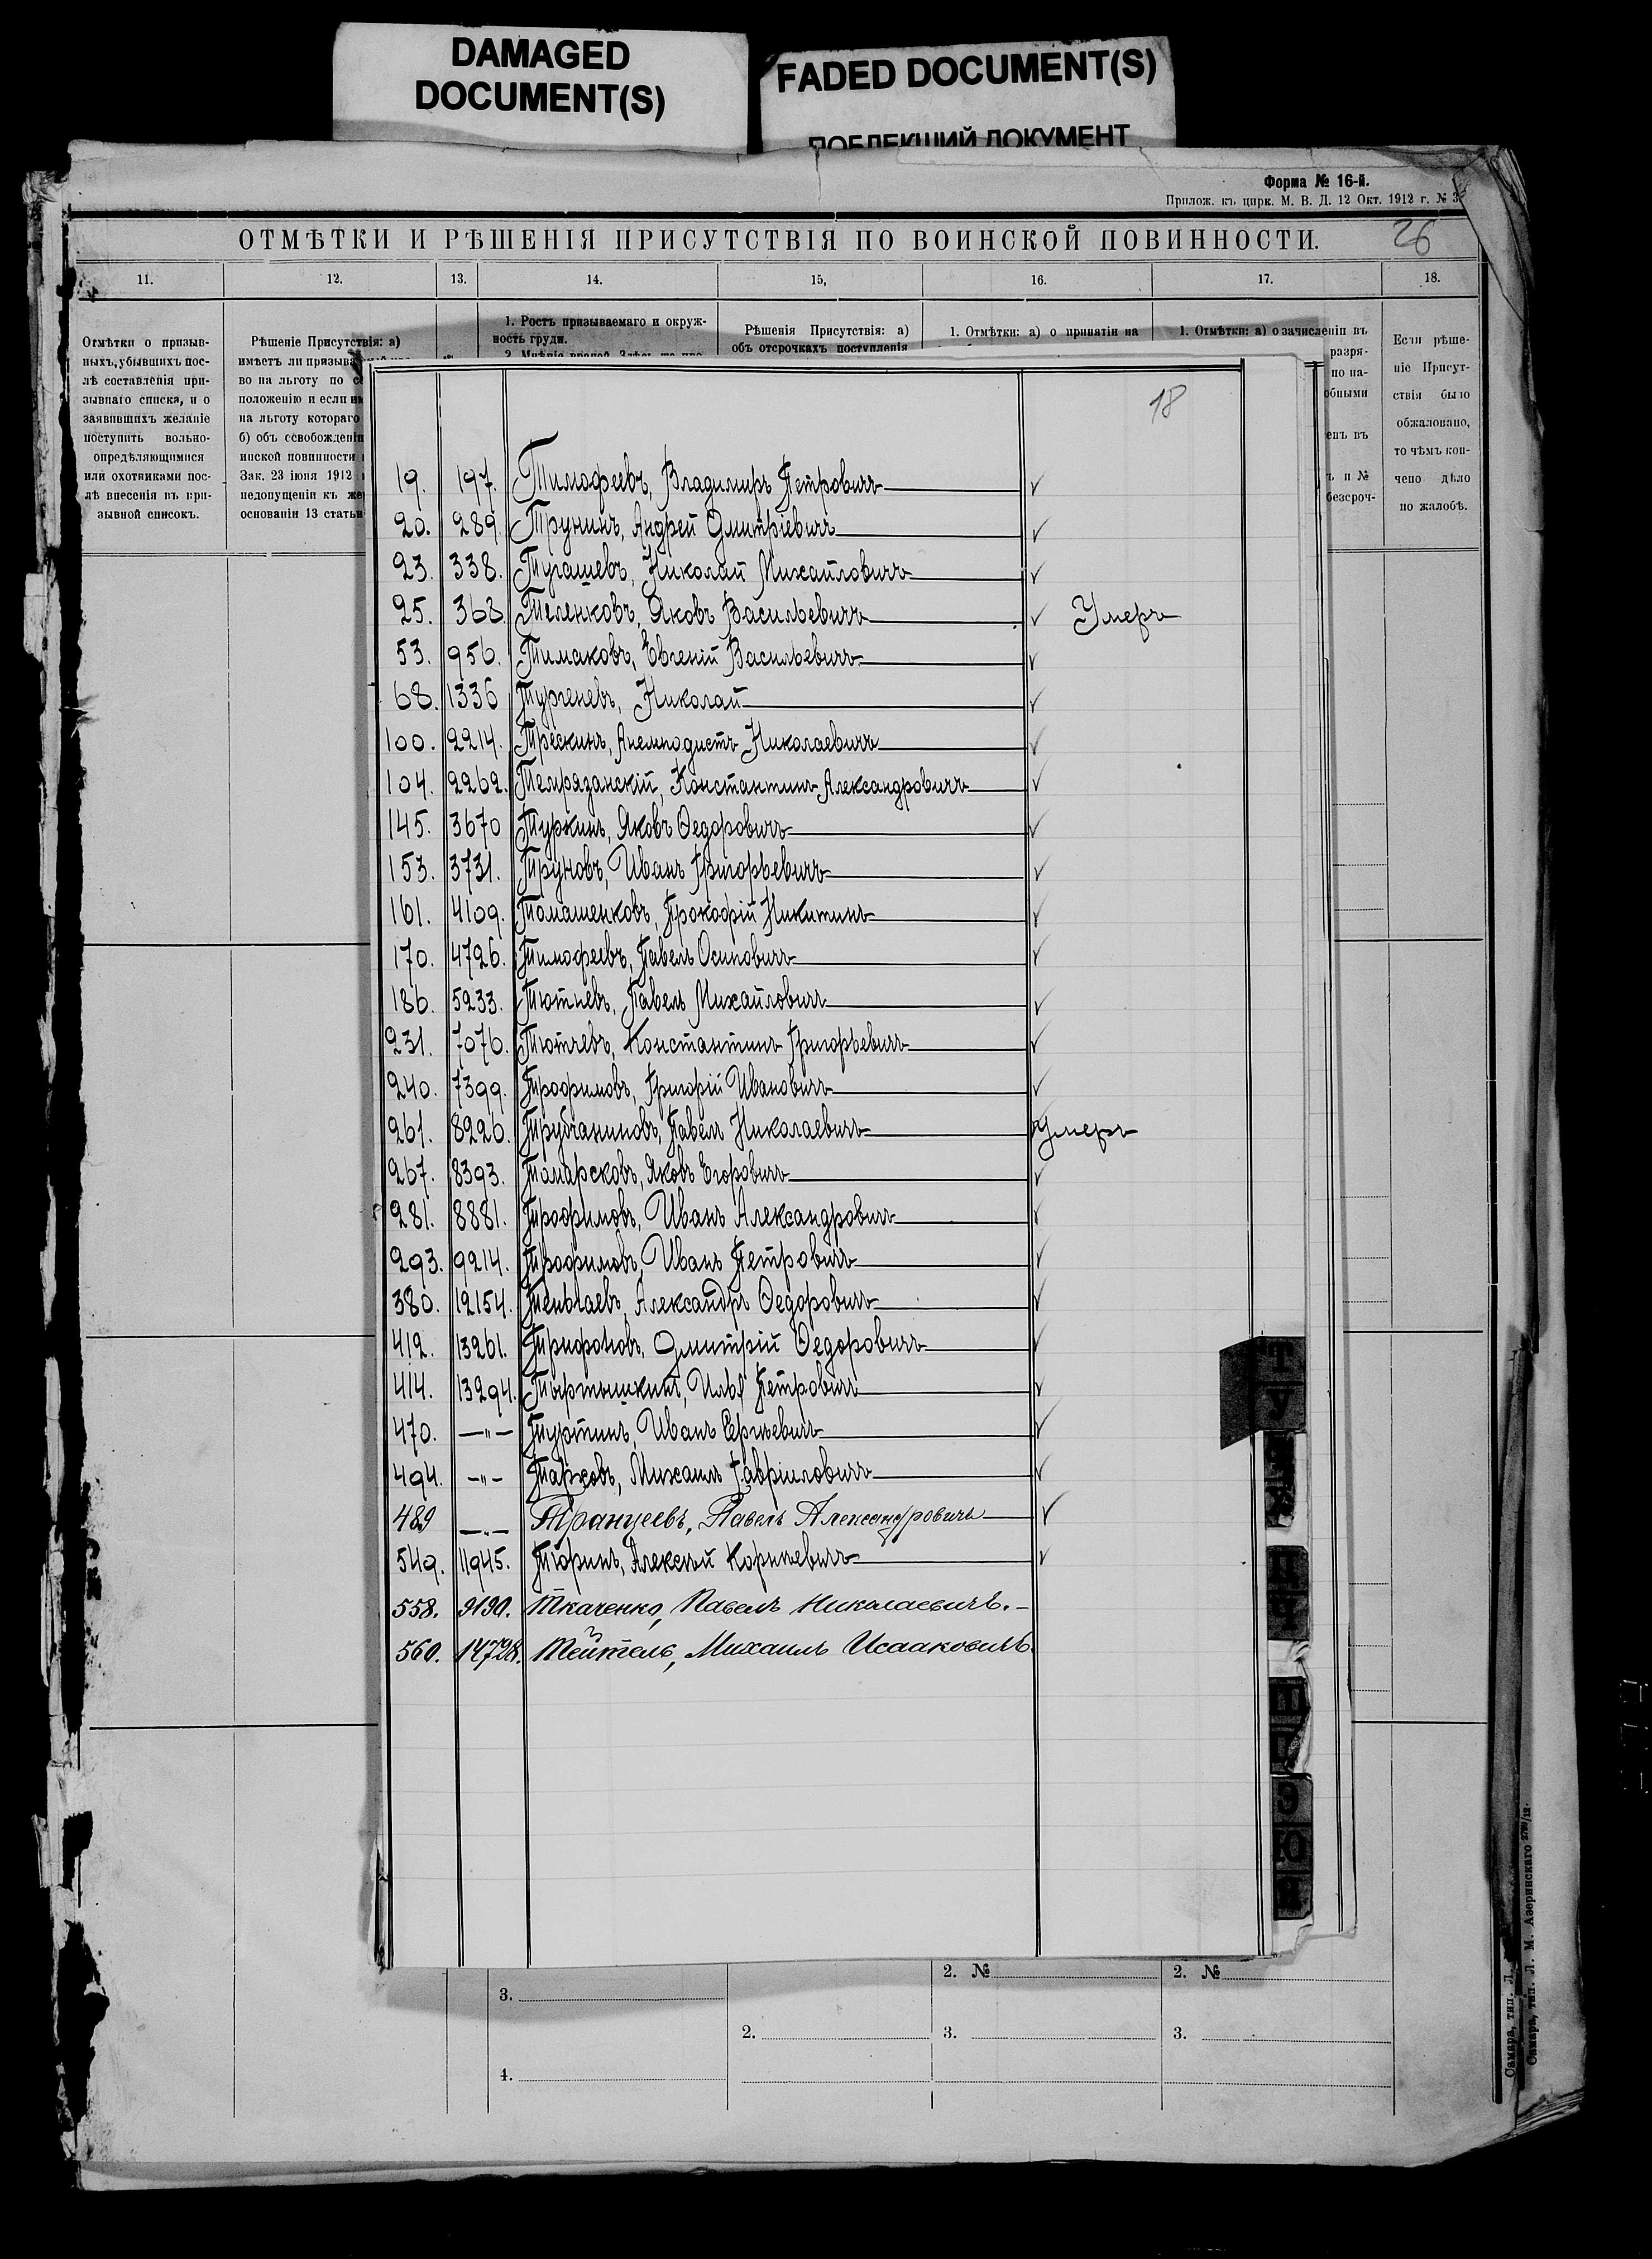 DAMAGED
DOCUMENT(S)
FADED DOCUMENT(S)
ПОБЛЕКШИЙ ДОКУМЕНТ
Форма № 16-й.
Прилож. къ цирк. М. В. Д. 12 Окт. 1912 г. № 3
ОТМѢТКИ И РѢШЕНІЯ ПРИСУТСТВІЯ ПО ВОИНСКОЙ ПОВИННОСТИ.
26
11. 12. 13. 14. 15, 16. 17. 18.
Отмѣтки о призыв-
ныхъ, убывшихъ пос-
лѣ составленія при-
зывнаго списка, и о
заявившихъ желаніе
поступить вольно-
опредѣляющимися
или охотниками пос-
лѣ внесенія въ при-
зывной списокъ.
Рѣшеніе Присутствія: а)
имѣетъ ли призыва
во на льготу по
положенію и если
на льготу котораго
б) объ освобожденіи
инской повинности
Зак. 23 іюня 1912
недопущеніи къ
основаніи 13 статьи
1. Ростъ призываемаго и окруж-
ность груди.
Рѣшенія Присутствія: а)
объ отсрочкахъ поступленія
1. Отмѣтки: а) о принятіи на
1. Отмѣтки: а) о зачисленіи въ
разря-
по на-
обными
енъ въ
ъ и №
безсроч-
Если рѣше-
ніе Присут-
ствія было
обжаловано,
то чѣмъ кон-
чено дѣло
по жалобѣ.
18
19. 197. Тимофеевъ, Владимиръ Петровичъ ✓
20. 289. Трунинъ, Андрей Дмитріевичъ ✓
23. 338. Тугашевъ, Николай Михайловичъ ✓
25. 368. Теленковъ, Яковъ Васильевичъ ✓ Умеръ
53. 956. Тимаковъ, Евгеній Васильевичъ ✓
68. 1336 Тургеневъ, Николай ✓
100. 2214. Трескинъ, Анемподистъ Николаевичъ ✓
104. 2262. Темрязанскій, Константинъ Александровичъ ✓
145. 3670 Туркинъ, Яковъ Ѳедоровичъ ✓
153. 3731. Труновъ, Иванъ Григорьевичъ ✓
161. 4109. Томашенковъ, Прокофій Никитинъ ✓
170. 4726. Тимофеевъ, Павелъ Осиповичъ ✓
186. 5233. Тютневъ, Павелъ Михайловичъ ✓
231. 7076. Тютчевъ, Константинъ Григорьевичъ ✓
240. 7399. Трофимовъ, Григорій Ивановичъ ✓
261. 8226. Трубчаниновъ, Павелъ Николаевичъ ✓ Умеръ
267. 8393. Тамарсковъ, Яковъ Егоровичъ ✓
281. 8881. Трофимовъ, Иванъ Александровичъ ✓
293. 9214. Трофимовъ, Иванъ Петровичъ ✓
380. 12154. Теньгаевъ, Александръ Ѳедоровичъ ✓
412. 13261. Трифоновъ, Дмитрій Ѳедоровичъ ✓
414. 13294. Тыртышкинъ, Илья Петровичъ ✓
470. —"— Туртинъ, Иванъ ✓
494. —"— Тарховъ, Михаилъ Гавріиловичъ ✓
489 —"— Транцеевъ, Павелъ Александровичъ ✓
549. 11945. Тюринъ, Алексѣй Корнѣевичъ ✓
558. 9190. Ткаченко, Павелъ Николаевичъ.
560. 14728. Тейтель, Михаилъ Исааковичъ.
3.
4.
2.
2. №
3.
2. №
3.
Самара, тип. Л.
Самара, тип. Л. М. Азеринскаго